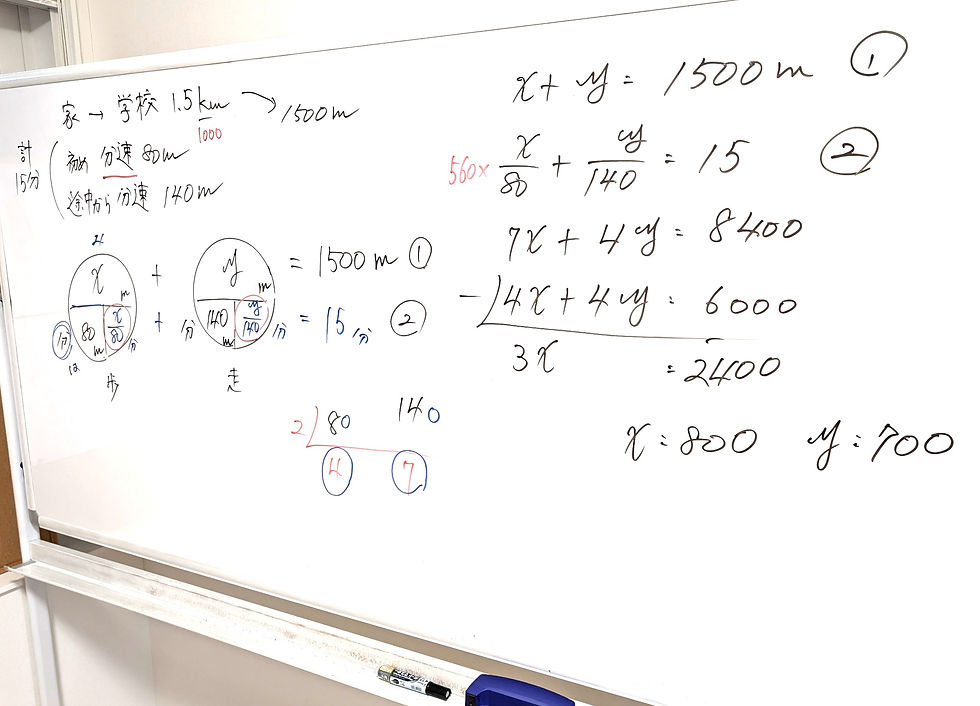 家 → 学校 1.5km → 1500m
1000
計 15分
初め 分速 80m
途中から 分速 140m
x m + y m = 1500m ①
分 80m x/80 分 + 分 140m y/140 分 = 15分 ②
歩 走
2 ) 80 140
4 7
x + y = 1500m ①
560× x/80 + y/140 = 15 ②
7x + 4y = 8400
-) 4x + 4y = 6000
3x = 2400
x = 800 y = 700